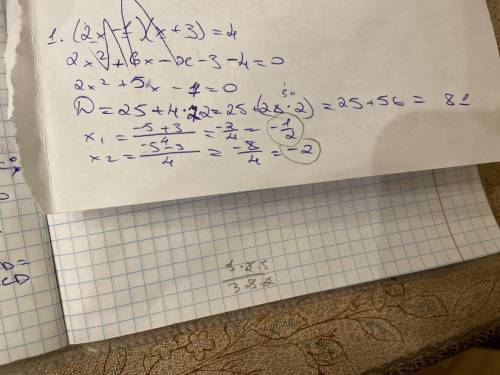 1. (2x - 1)(x + 3) = 4
2x² + 6x - x - 3 - 4 = 0
2x² + 5x - 7 = 0
D = 25 + 4 · 7 · 2 = 25 + (28 · 2) = 25 + 56 = 81
x₁ = (-5 + 3)/4 = -2/4 = -1/2
x₂ = (-5 - 3)/4 = -8/4 = -2
CD